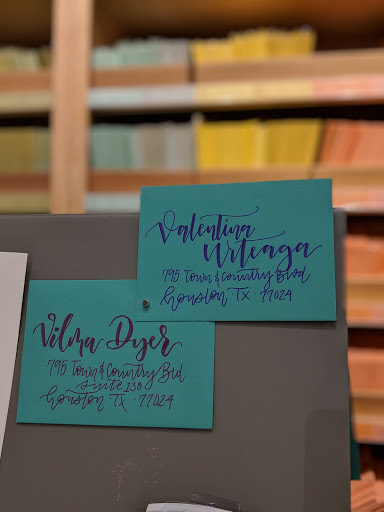 Valentina
Urteaga
795 Town & Country Blvd
Houston TX · 77024
Vilma Dyer
795 Town & Country Bld
Suite 138
Houston TX · 77024